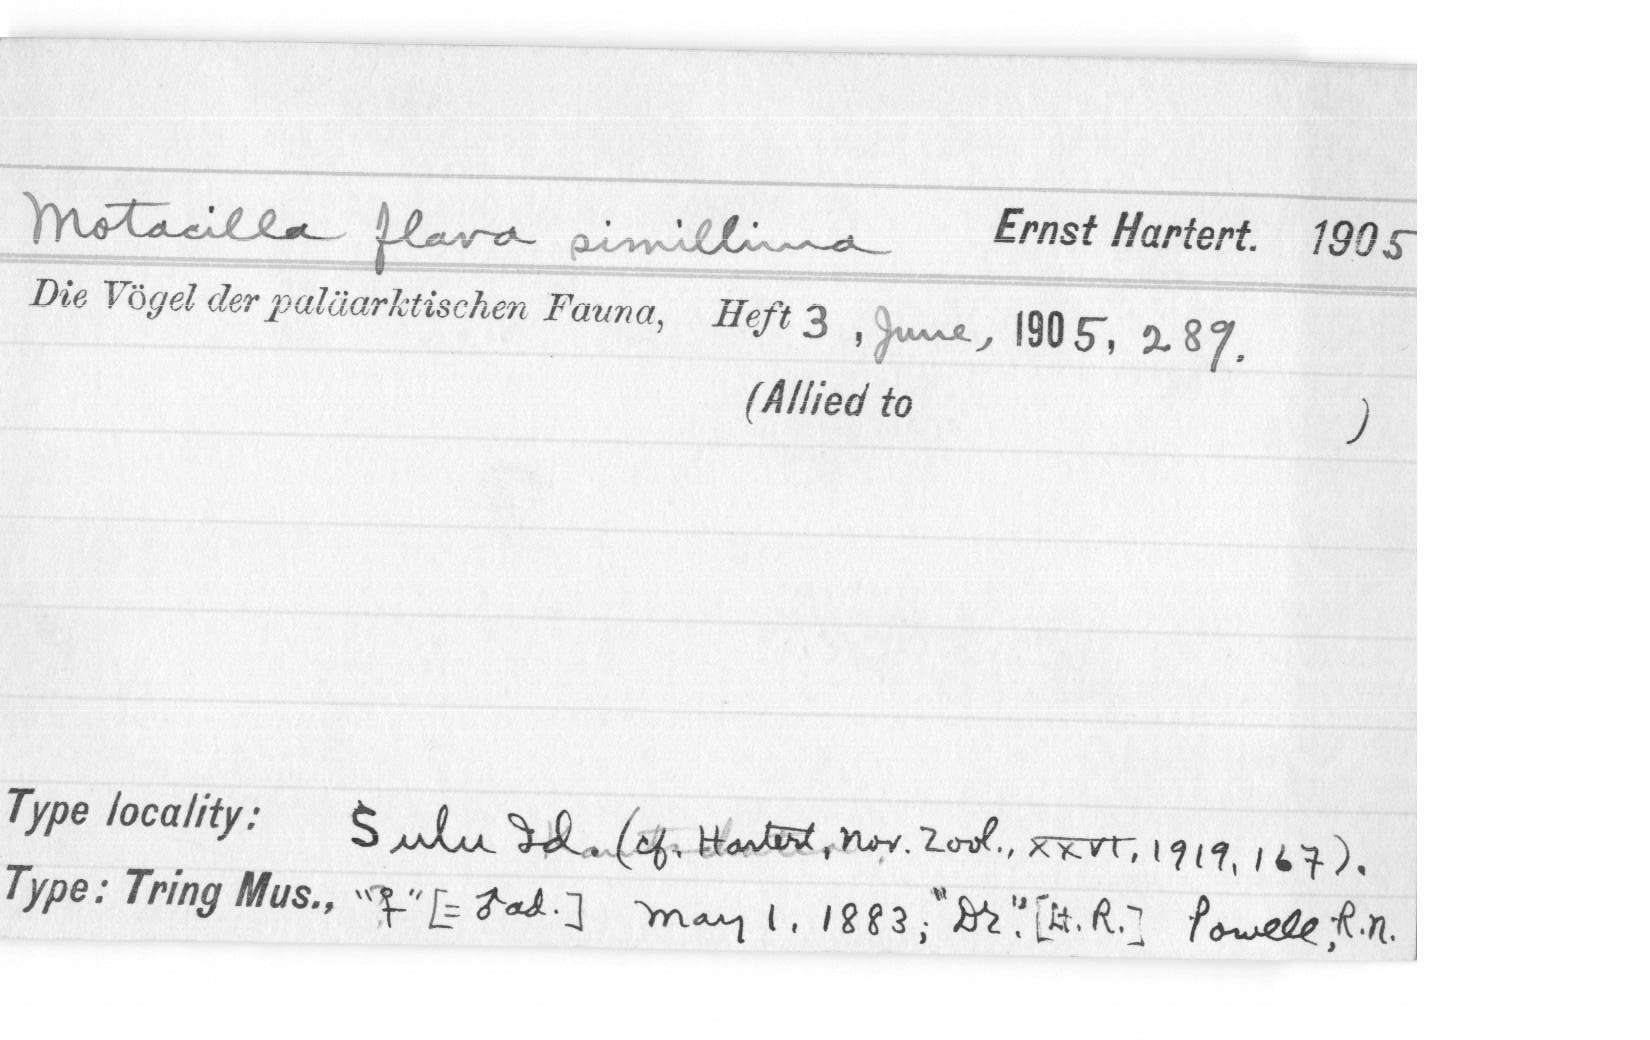 Motacilla flava simillima Ernst Hartert. 1905
Die Vögel der paläarktischen Fauna, Heft 3, June, 1905, 289.
(Allied to )
Type locality: Sulu Id. (cf. Hartert, Nov. Zool., XXVI, 1919, 167).
Type: Tring Mus., "♀" [= ♂ ad.] May 1, 1883; "Dr." [H. R.] Powell, R.N.